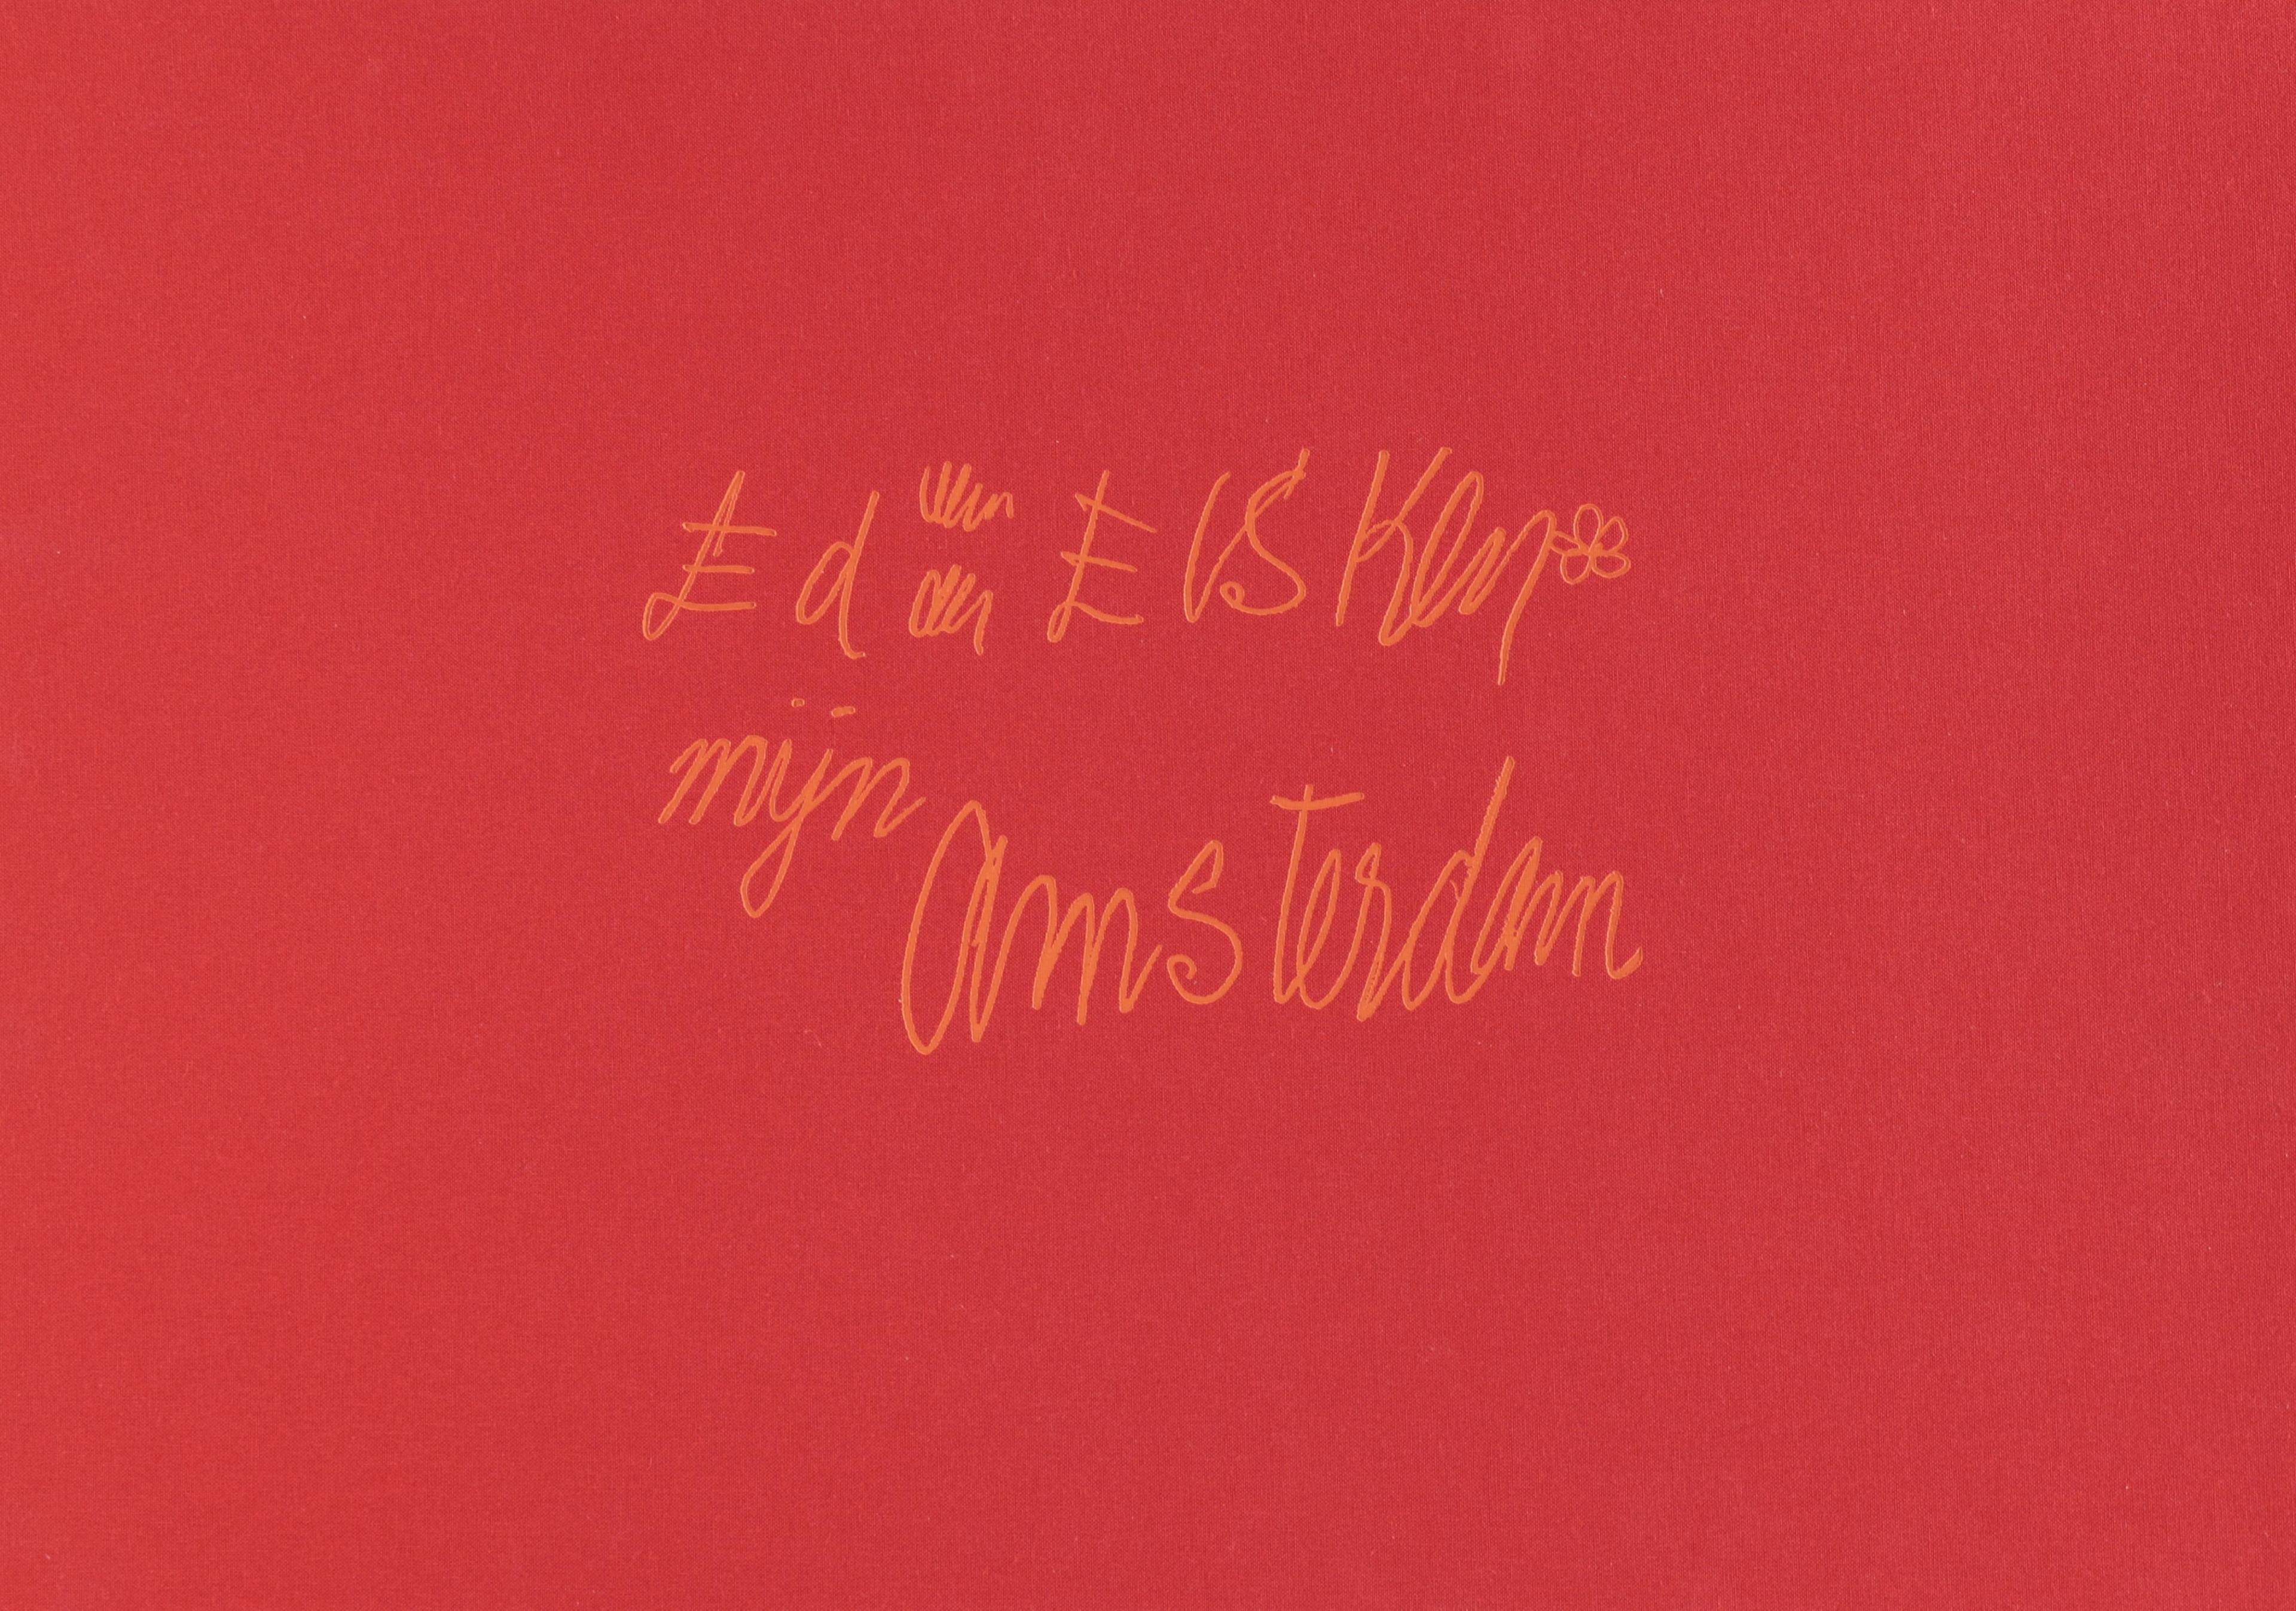 Ed van der Elsken
mijn
Amsterdam